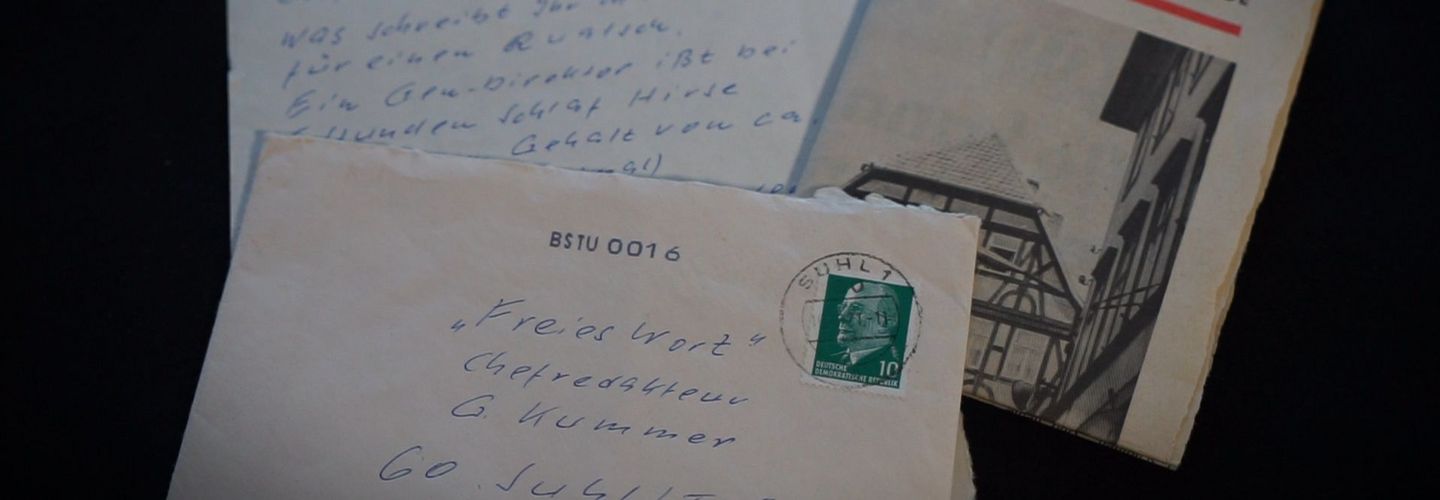 was schreibt Ihr
für einen Quatsch.
Ein Gen-Direktor ißt bei
Stunden Schlaf Hirse
Gehalt von ca.
BSTU 0016
SUHL 1
„Freies Wort"
Chefredakteur
G. Kummer
60 Suhl
DEUTSCHE
DEMOKRATISCHE REPUBLIK
10